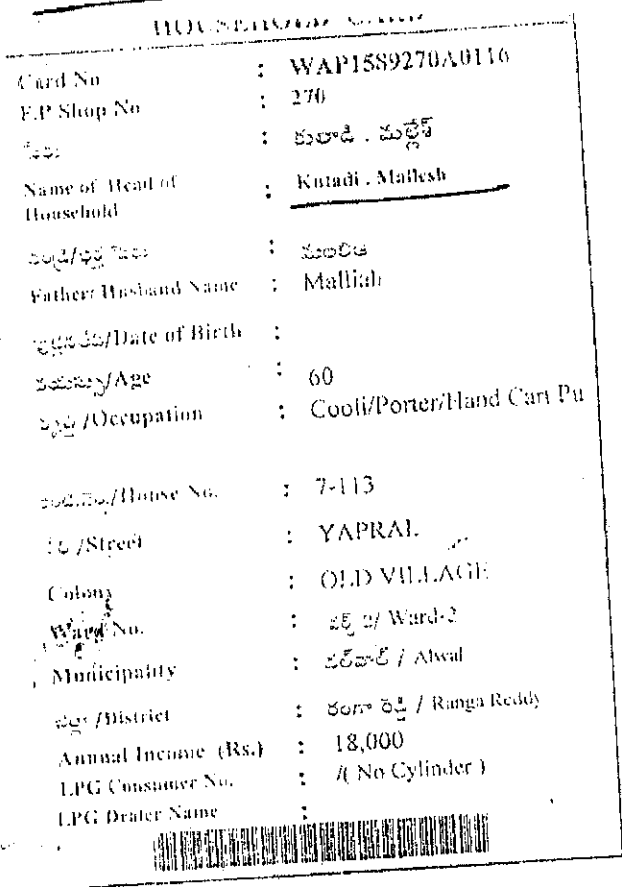 HOUSEHOLD CARD
Card No : WAP1589270A0116
F.P Shop No : 270
పేరు : కుటాడి . మల్లేశ్
Name of Head of Household : Kutadi . Mallesh
తండ్రి/భర్త పేరు :
Father/ Husband Name : Malliah
/Date of Birth :
వయస్సు/Age : 60
వృత్తి /Occupation : Cooli/Porter/Hand Cart Pu
/House No. : 7-113
/Street : YAPRAL
Colony : OLD VILLAGE
Ward No. : వార్డ్ 2/ Ward-2
Municipality : / Alwal
జిల్లా /District : రంగా రెడ్డి / Ranga Reddy
Annual Income (Rs.) : 18,000
LPG Consumer No. : /( No Cylinder )
LPG Dealer Name :